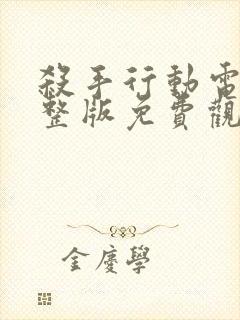 殺手行動電
整版免費觀
金慶學